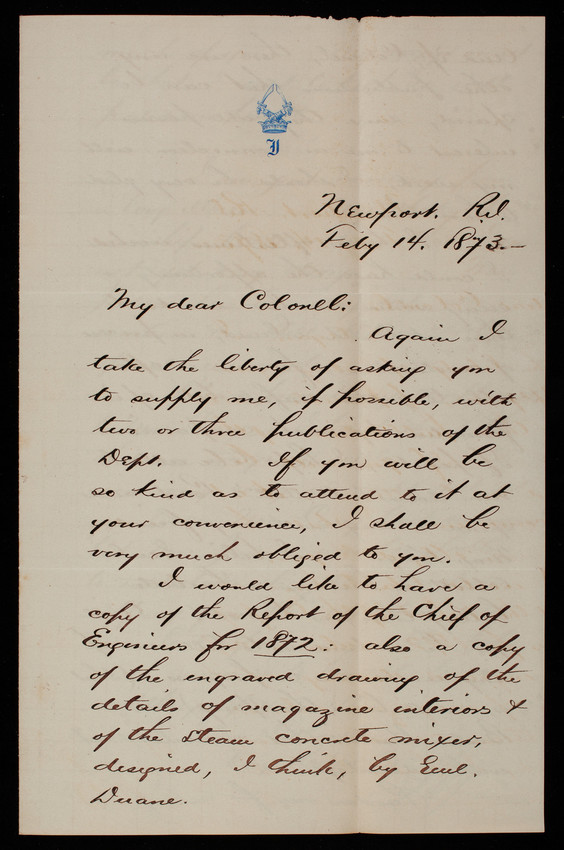 I
Newport. R.I.
Feby 14. 1873.—
My dear Colonel:
Again I
take the liberty of asking you
to supply me, if possible, with
two or three publications of the
Dept. If you will be
so kind as to attend to it at
your convenience, I shall be
very much obliged to you.
I would like to have a
copy of the Report of the Chief of
Engineers for 1872: also a copy
of the engraved drawing of the
details of magazine interiors &
of the steam concrete mixer,
designed, I think, by Genl.
Duane.